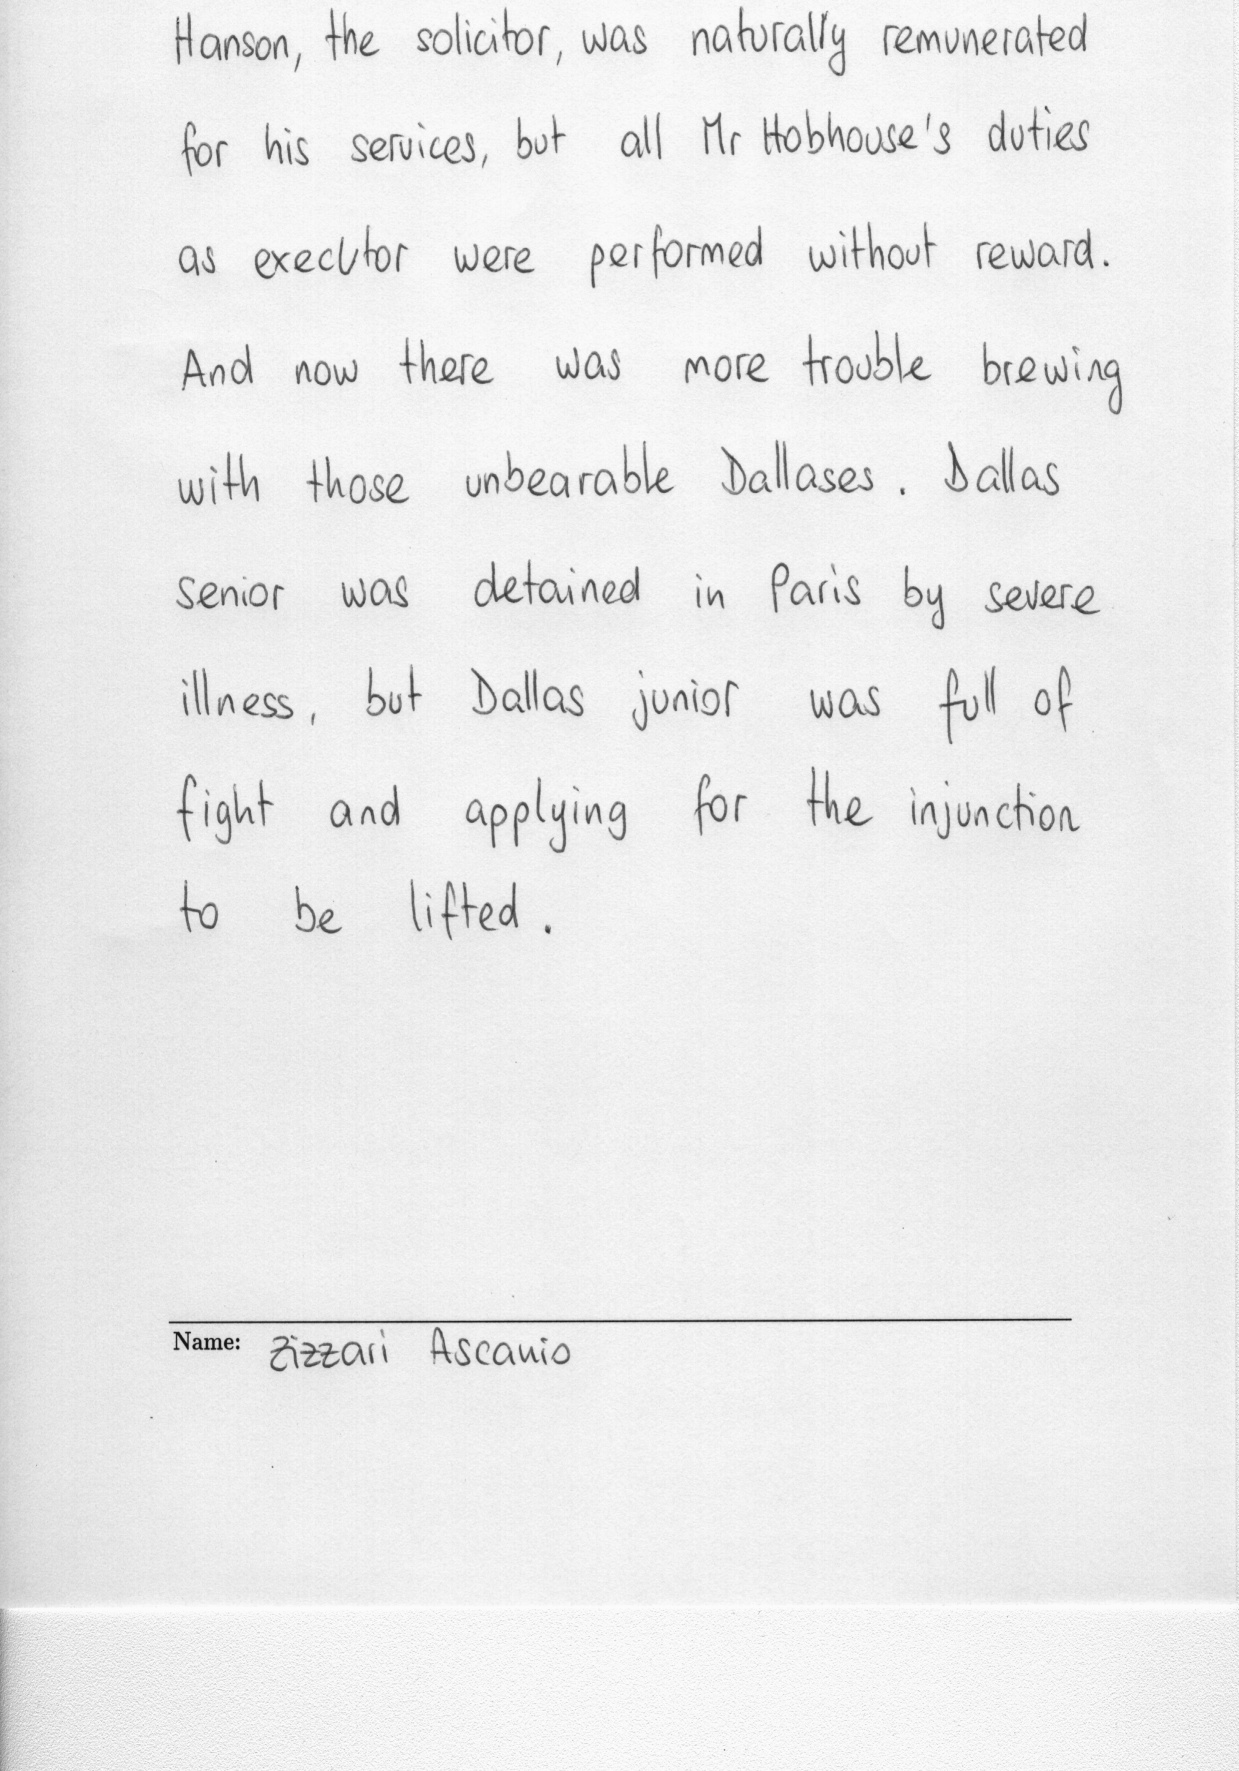 Hanson, the solicitor, was naturally remunerated
for his services, but all Mr Hobhouse's duties
as executor were performed without reward.
And now there was more trouble brewing
with those unbearable Dallases. Dallas
senior was detained in Paris by severe
illness, but Dallas junior was full of
fight and applying for the injunction
to be lifted.
Name: Zizzari Ascanio